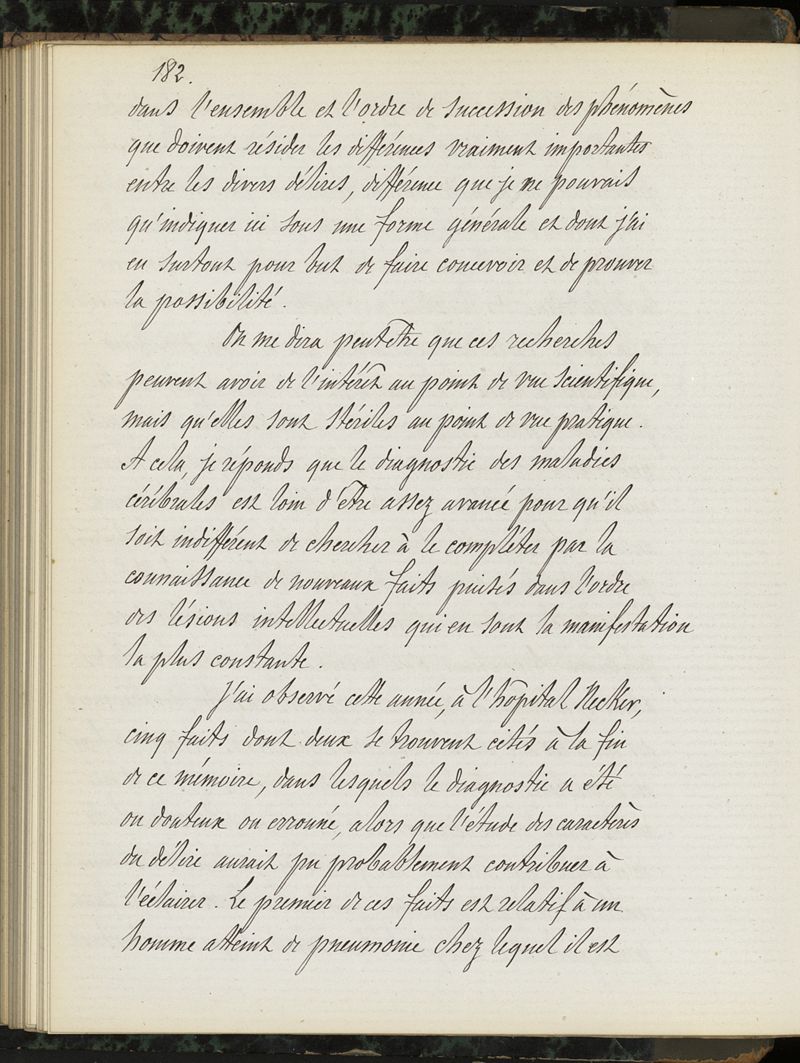 182.
dans l'ensemble et l'ordre de succession des phénomènes
que doivent résider les différences vraiment importantes
entre les divers délires, différence que je ne pouvais
qu'indiquer ici sous une forme générale et dont j'ai
eu surtout pour but de faire concevoir et de prouver
la possibilité.
On me dira peut être que ces recherches
peuvent avoir de l'intérêt au point de vue scientifique,
mais qu'elles sont stériles au point de vue pratique.
A cela, je réponds que le diagnostic des maladies
cérébrales est loin d'être assez avancé pour qu'il
soit indifférent de chercher à le compléter par la
connaissance de nouveaux faits puisés dans l'ordre
des lésions intellectuelles qui en sont la manifestation
la plus constante.
J'ai observé cette année, à l'hôpital Necker,
cinq faits dont deux se trouvent cités à la fin
de ce mémoire, dans lesquels le diagnostic a été
ou douteux ou erronné, alors que l'étude des caractères
du délire aurait pu probablement contribuer à
l'éclairer. Le premier de ces faits est relatif à un
homme atteint de pneumonie chez lequel il est